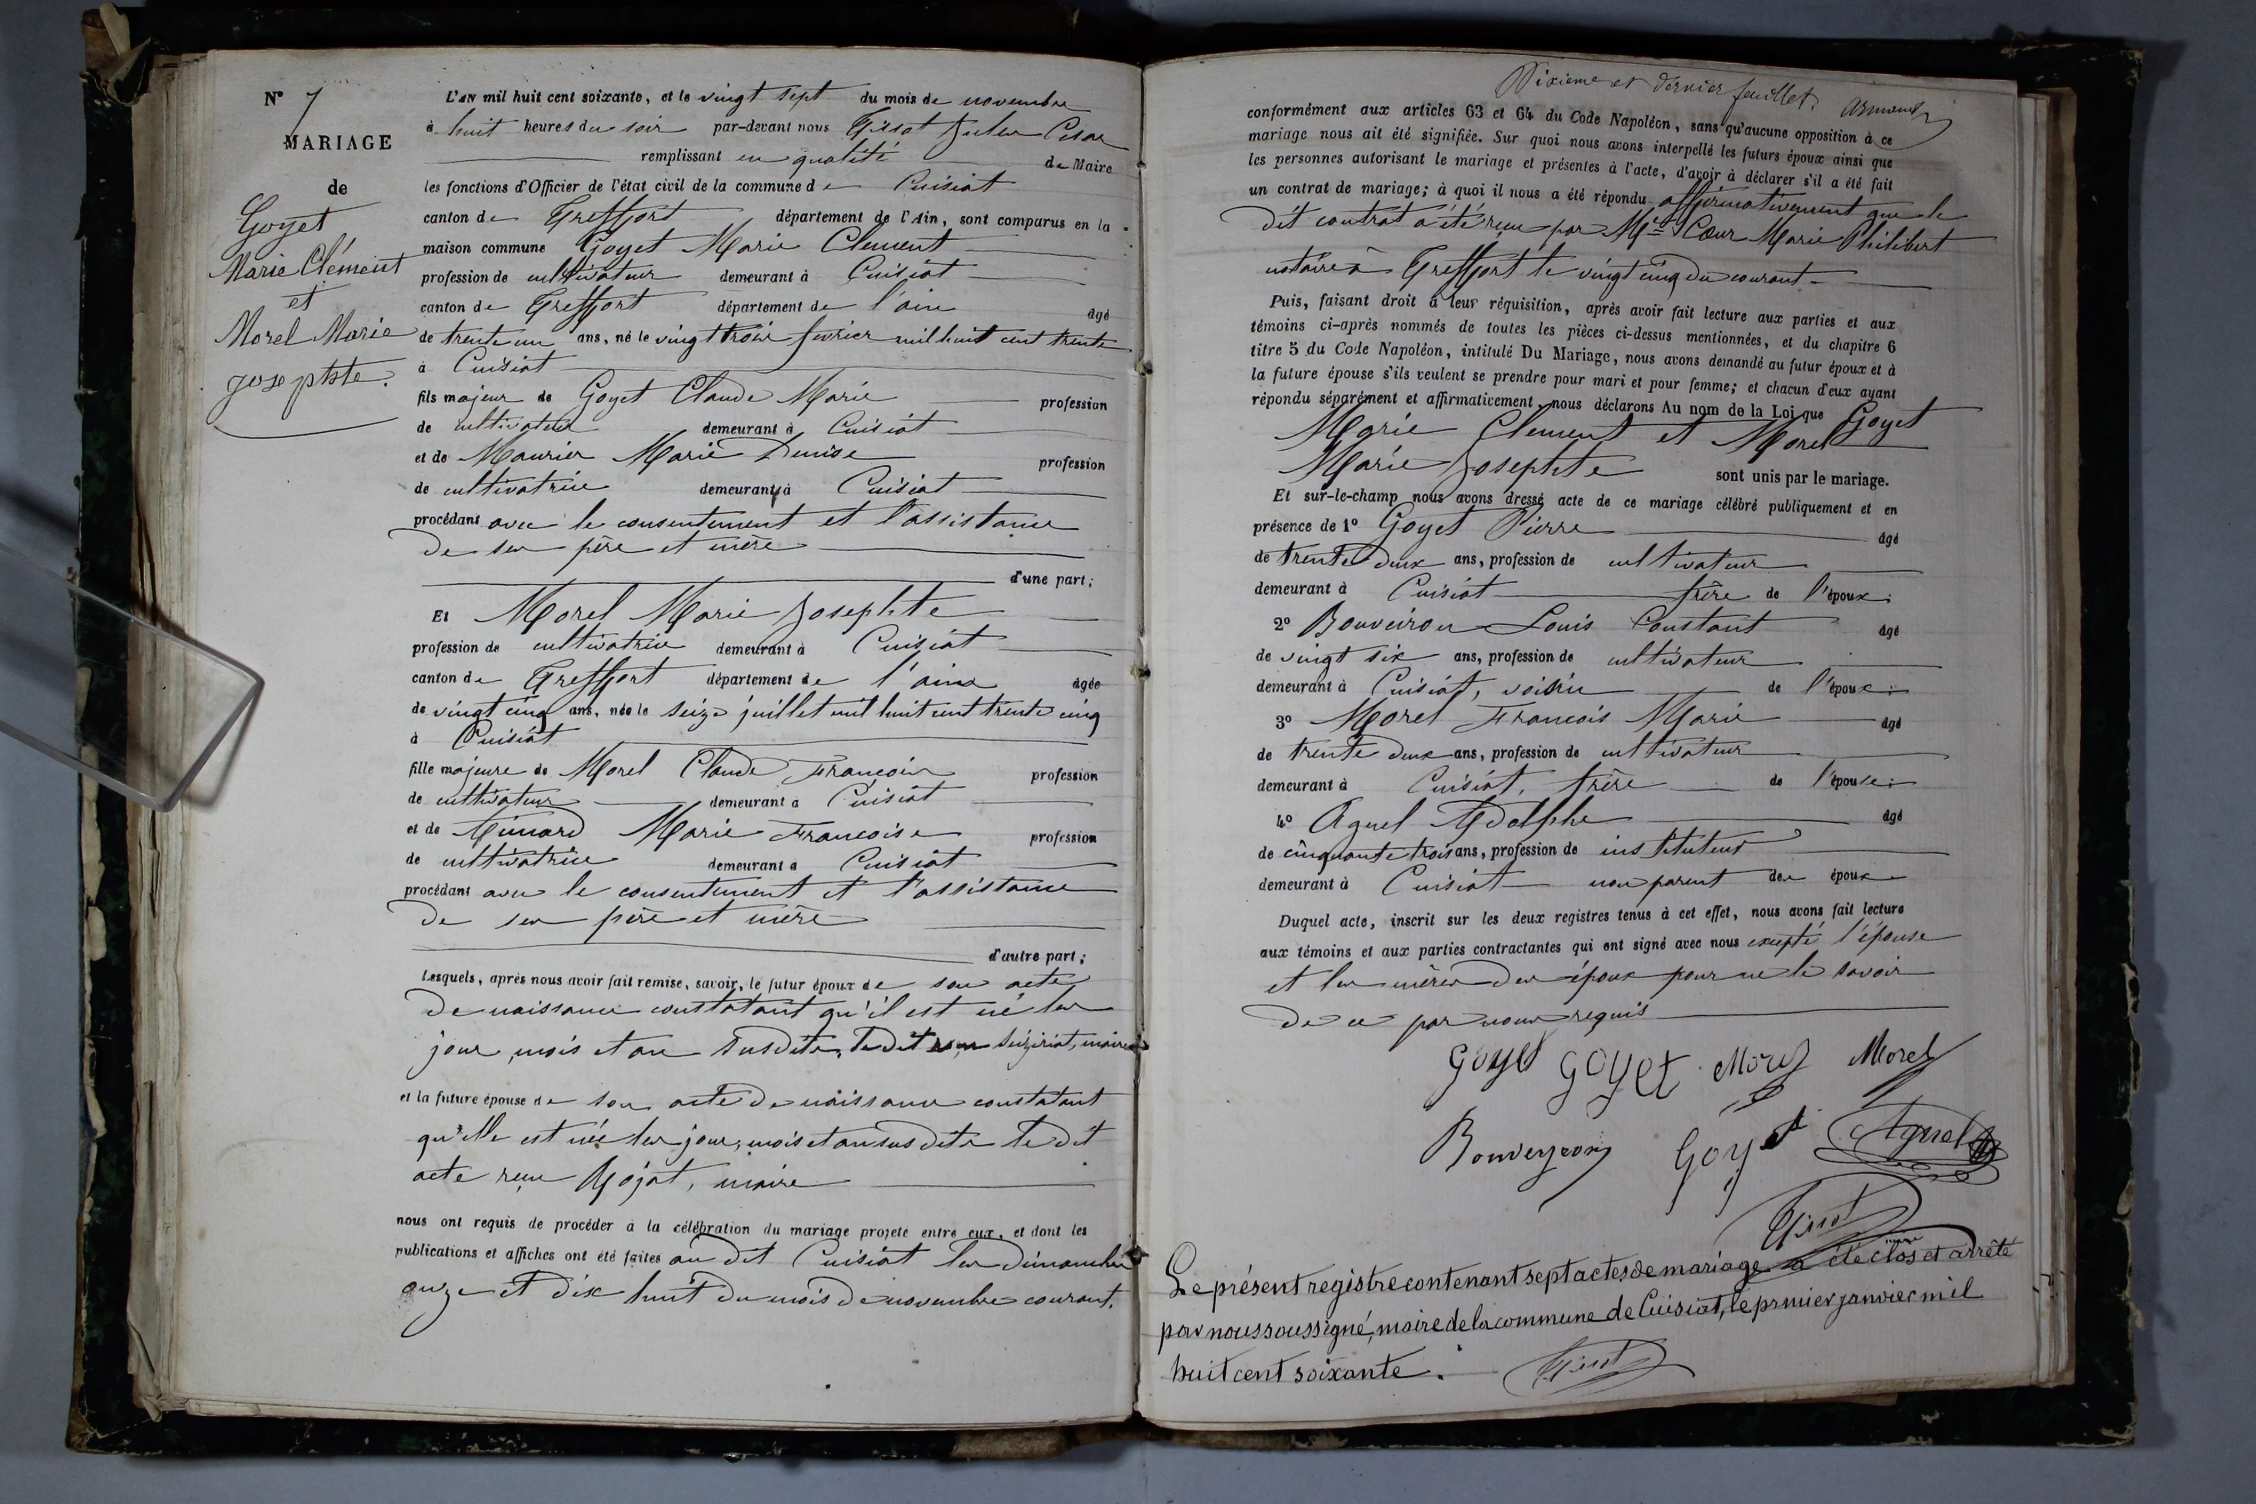 N° 7
MARIAGE
de
Goyet
Marie Clément
et
Morel Marie
Josephte.
L'AN mil huit cent soixante, et le vingt sept du mois de novembre
à huit heures du soir par-devant nous Tissot Jules Cesar
remplissant en qualité de Maire
les fonctions d'Officier de l'état civil de la commune de Cuisiat
canton de Treffort département de l'Ain, sont comparus en la
maison commune Goyet Marie Clement
profession de cultivateur demeurant à Cuisiat
canton de Treffort département de l'ain âgé
de trente un ans, né le vingt trois fevrier mil huit cent trente
à Cuisiat
fils majeur de Goyet Claude Marie profession
de cultivateur demeurant à Cuisiat
et de Maurier Marie Denise profession
de cultivatrice demeurant à Cuisiat
procédant avec le consentement et l'assistance
de ses père et mère
d'une part;
Et Morel Marie Josephte
profession de cultivatrice demeurant à Cuisiat
canton de Treffort département de l'ain âgée
de vingt cinq ans, née le seize juillet mil huit cent trente cinq
à Cuisiat
fille majeure de Morel Claude François profession
de cultivateur demeurant à Cuisiat
et de Marie Francoise profession
de cultivatrice demeurant à Cuisiat
procédant avec le consentement et l'assistance
de ses père et mère
d'autre part;
Lesquels, après nous avoir fait remise, savoir, le futur époux de son acte
de naissance constatant qu'il est né les
jour, mois et an susdits, le dit reçu Seiziriat, maire
et la future épouse de son acte de naissance constatant
qu'elle est née les jour, mois et an susdits le dit
acte reçu Mojat, maire
nous ont requis de procéder à la célébration du mariage projeté entre eux, et dont les
publications et affiches ont été faites au dit Cuisiat les dimanches
onze et dix huit du mois de novembre courant.
Dixieme et dernier feuillet. Armand
conformément aux articles 63 et 64 du Code Napoléon, sans qu'aucune opposition à ce
mariage nous ait été signifiée. Sur quoi nous avons interpellé les futurs époux ainsi que
les personnes autorisant le mariage et présentes à l'acte, d'avoir à déclarer s'il a été fait
un contrat de mariage; à quoi il nous a été répondu affirmativement que le
dit contrat a été reçu par Me Cœur Marie Philibert
notaire à Treffort le vingt cinq du courant
Puis, faisant droit à leur réquisition, après avoir fait lecture aux parties et aux
témoins ci-après nommés de toutes les pièces ci-dessus mentionnées, et du chapitre 6
titre 5 du Code Napoléon, intitulé Du Mariage, nous avons demandé au futur époux et à
la future épouse s'ils veulent se prendre pour mari et pour femme; et chacun d'eux ayant
répondu séparément et affirmativement, nous déclarons Au nom de la Loi que Goyet
Marie Clement et Morel
Marie Josephte sont unis par le mariage.
Et sur-le-champ nous avons dressé acte de ce mariage célébré publiquement et en
présence de 1° Goyet Pierre âgé
de trente deux ans, profession de cultivateur
demeurant à Cuisiat frère de l'époux;
2° Bouveiron Louis Constant âgé
de vingt six ans, profession de cultivateur
demeurant à Cuisiat, voisin de l'époux;
3° Morel Francois Marie âgé
de trente deux ans, profession de cultivateur
demeurant à Cuisiat, frère de l'épouse;
4° Aguel Adolphe âgé
de cinquante trois ans, profession de instituteur
demeurant à Cuisiat non parent des époux
Duquel acte, inscrit sur les deux registres tenus à cet effet, nous avons fait lecture
aux témoins et aux parties contractantes qui ont signé avec nous excepté l'épouse
et les mères des époux pour ne le savoir
de ce par nous requis
Goyet Goyet Morel Morel
Bouveyron Goyet Aguel
Tissot
Le présent registre contenant sept actes de mariage a été clos et arrêté
par nous soussigné, maire de la commune de Cuisiat, le prmier janvier mil
huit cent soixante.
Tissot